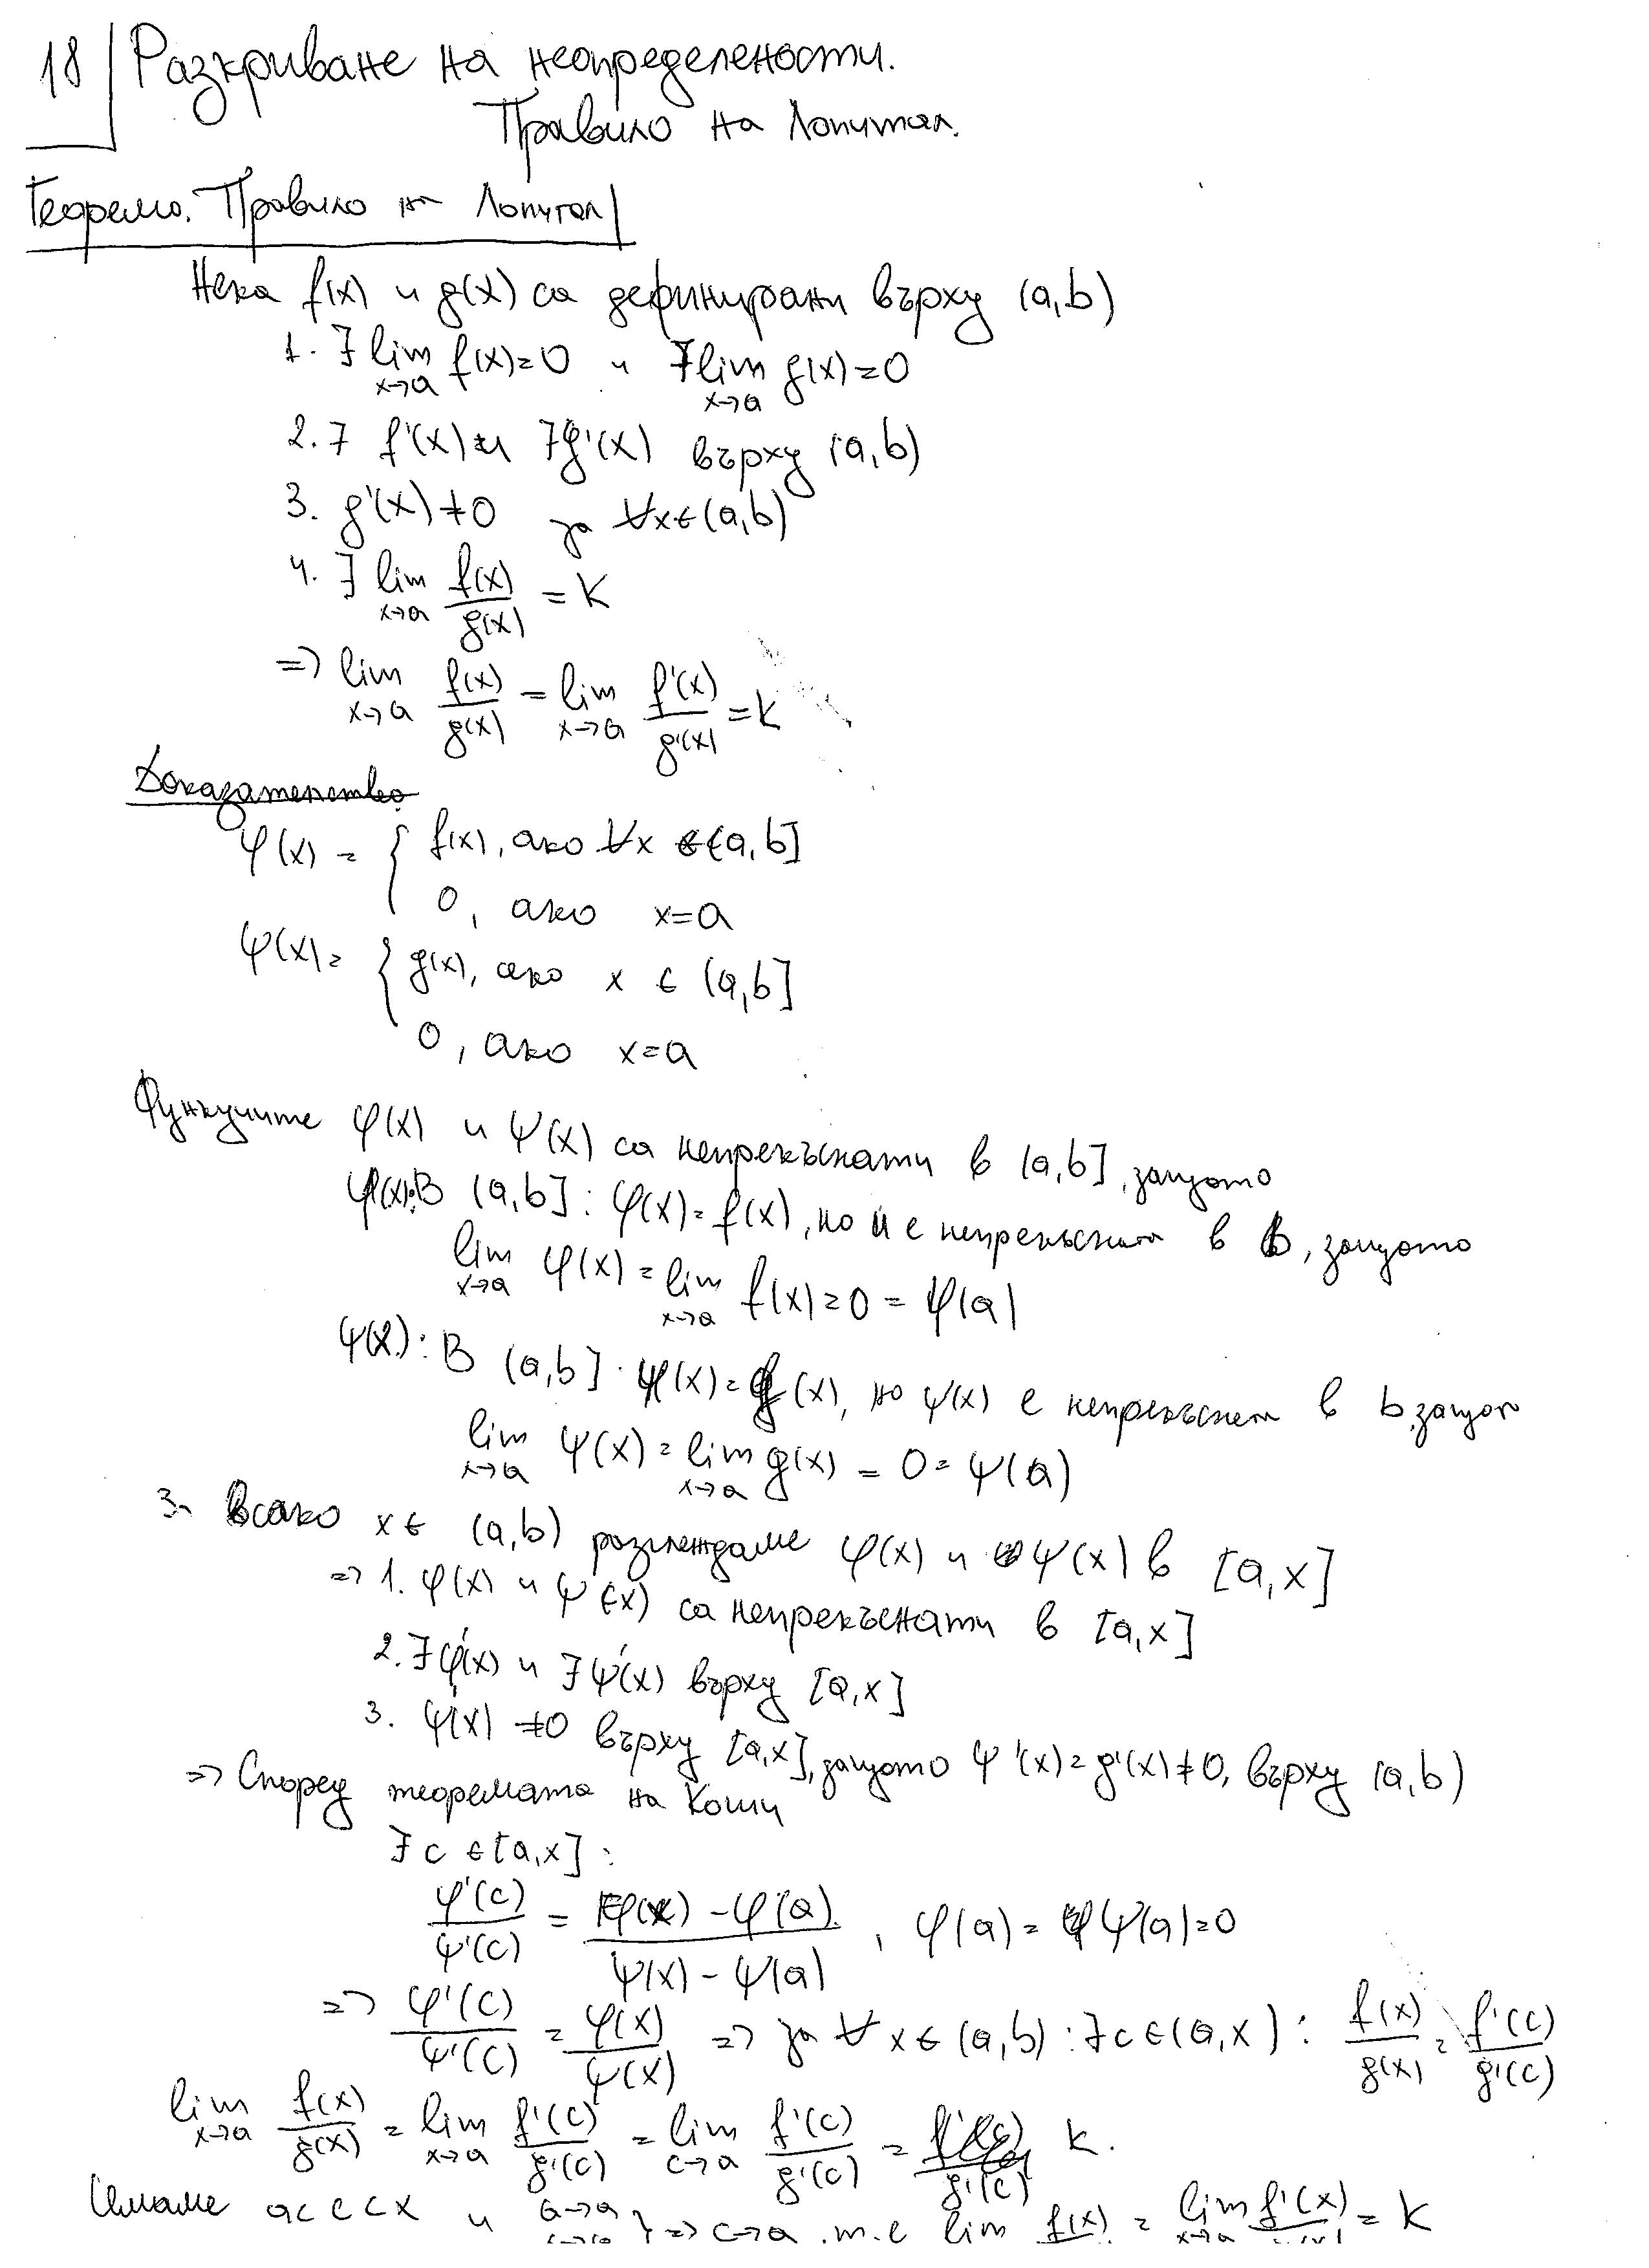 18 Разкриване на неопределености.
Правило на Лопитал.
Теорема. Правило на Лопитал
Нека f(x) и g(x) са дефинирани върху (a,b)
1. ∃ lim x→a f(x)=0 и ∃ lim x→a g(x)=0
2. ∃ f'(x) и ∃ g'(x) върху (a,b)
3. g'(x)≠0 за ∀x∈(a,b)
4. ∃ lim x→a f(x)/g(x) = k
=> lim x→a f(x)/g(x) = lim x→a f'(x)/g'(x) = k
Доказателство
φ(x) = { f(x), ако ∀x ∈ (a,b]
0, ако x=a
ψ(x) = { g(x), ако x ∈ (a,b]
0, ако x=a
Функциите φ(x) и ψ(x) са непрекъснати в (a,b], защото
φ(x): В (a,b] : φ(x)=f(x), но и е непрекъсната в b, защото
lim x→a φ(x) = lim x→a f(x)=0=φ(a)
ψ(x): В (a,b] : ψ(x)=g(x), но ψ(x) е непрекъсната в b, защото
lim x→a ψ(x) = lim x→a g(x) = 0 = ψ(a)
За всяко x∈ (a,b) разглеждаме φ(x) и ψ(x) в [a,x]
=> 1. φ(x) и ψ(x) са непрекъснати в [a,x]
2. ∃φ'(x) и ∃ψ'(x) върху [a,x]
3. ψ'(x) ≠0 върху [a,x], защото ψ'(x)=g'(x)≠0, върху (a,b)
=> Според теоремата на Коши
∃ c ∈[a,x] :
φ'(c)/ψ'(c) = φ(x)-φ(a)/ψ(x)-ψ(a) , φ(a)=ψ(a)=0
=> φ'(c)/ψ'(c) = φ(x)/ψ(x) => за ∀ x∈(a,b) : ∃c∈(a,x) : f(x)/g(x) = f'(c)/g'(c)
lim x→a f(x)/g(x) = lim x→a f'(c)/g'(c) = lim c→a f'(c)/g'(c) = k.
Имаме a<c<x и a→a } => c→a, т.е lim f(x) = lim x→a f'(x) = k